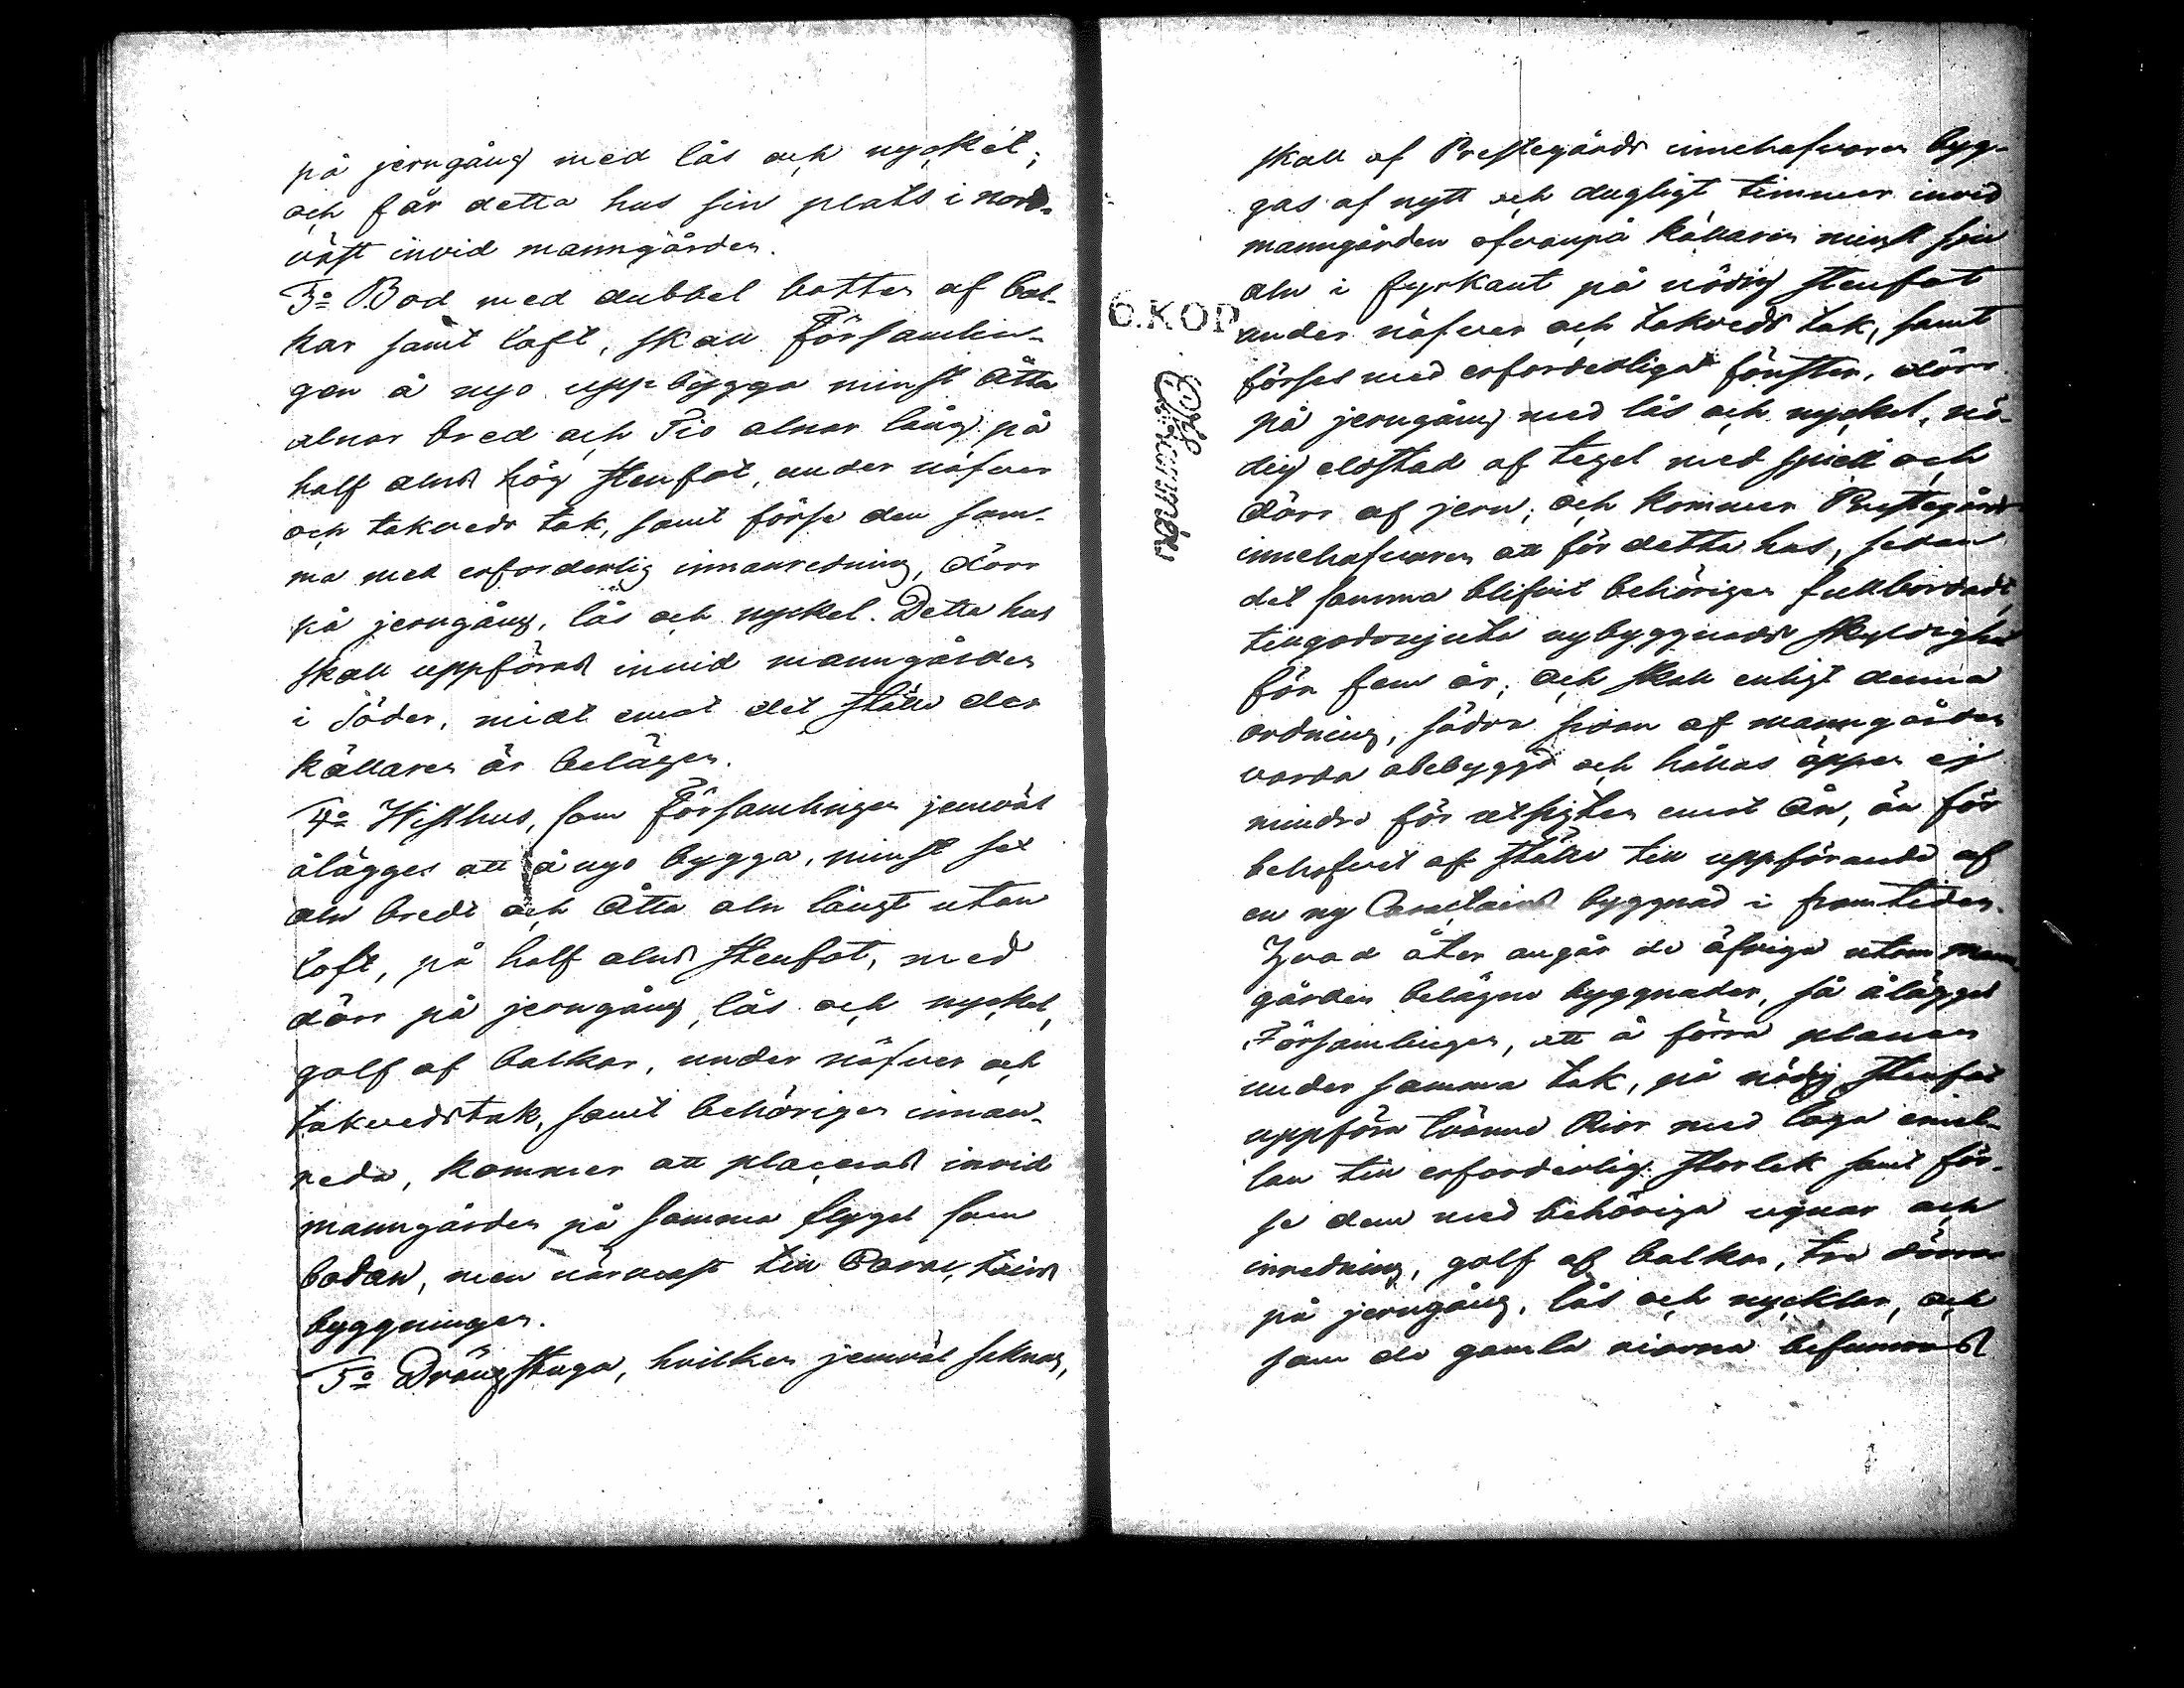 på jerngång med lås och nyckel;
och får detta hus sin plats i nord-
väst invid manngården.
3o Bod med dubbel botten af bal-
kar samt loft, skall Församlin-
gen å nyo uppbygga minst Åtta
alnar bred och Tio alnar lång på
half alns hög stenfot, under näfver
och takveds tak, samt förse den sam-
ma med erforderlig innanredning, dörr
på jerngång, lås och nyckel. Detta hus
skall uppföras invid manngården
i Söder, midt emot det ställe der
källaren är belägen.
4o Visthus, som Församlingen jemväl
ålägges att å nyo bygga, minst sex
aln bredt och Åtta aln långt utan
loft, på half alns stenfot, med
dörr på jerngång, lås och nyckel,
golf af balkar, under näfver och
takvedstak, samt behörigen innan-
reda, kommer att placeras invid
manngården på samma flygel som
bodan, men närmast till Caractairs
byggningen.
5o Drängstuga, hvilken jemväl saknas,
skall af Prestegårds innehafvaren byg-
gas af nytt och dugligt timmer invid
manngården ofvanpå källaren minst sju
aln i fyrkant på nödig stenfot
under näfver och takveds tak, samt
förses med erforderliga fönster, dörr
på jerngång med lås och nyckel, nö-
dig eldstad af tegel med spiell och
dörr af jern; och kommer Prestegårds
innehafvaren att för detta hus, sedan
det samma blifvit behörigen fullbordadt,
tillgodonjuta nybyggnads skyldighet
för fem år; och skall enligt denna
ordning, södra sidan af manngården
varda obebyggd och hållas öppen ej
mindre för utsigten emot Ån, än för
behofvet af ställe till uppförande af
en ny Caractairs byggnad i framtiden.
Hvad åter angår de öfriga utom mann-
gården belägne byggnader, så ålägges
Församlingen, att å förra planen
under samma tak, på nödig stenfot
uppföra tvänne Rior med loga emel-
lan till erforderlig storlek samt för-
se dem med behöriga ugnar och
inredning, golf af balkar, tre dörrar
på jerngång, lås och nycklar, och
som de gamla riorna befunnos
6.KOP